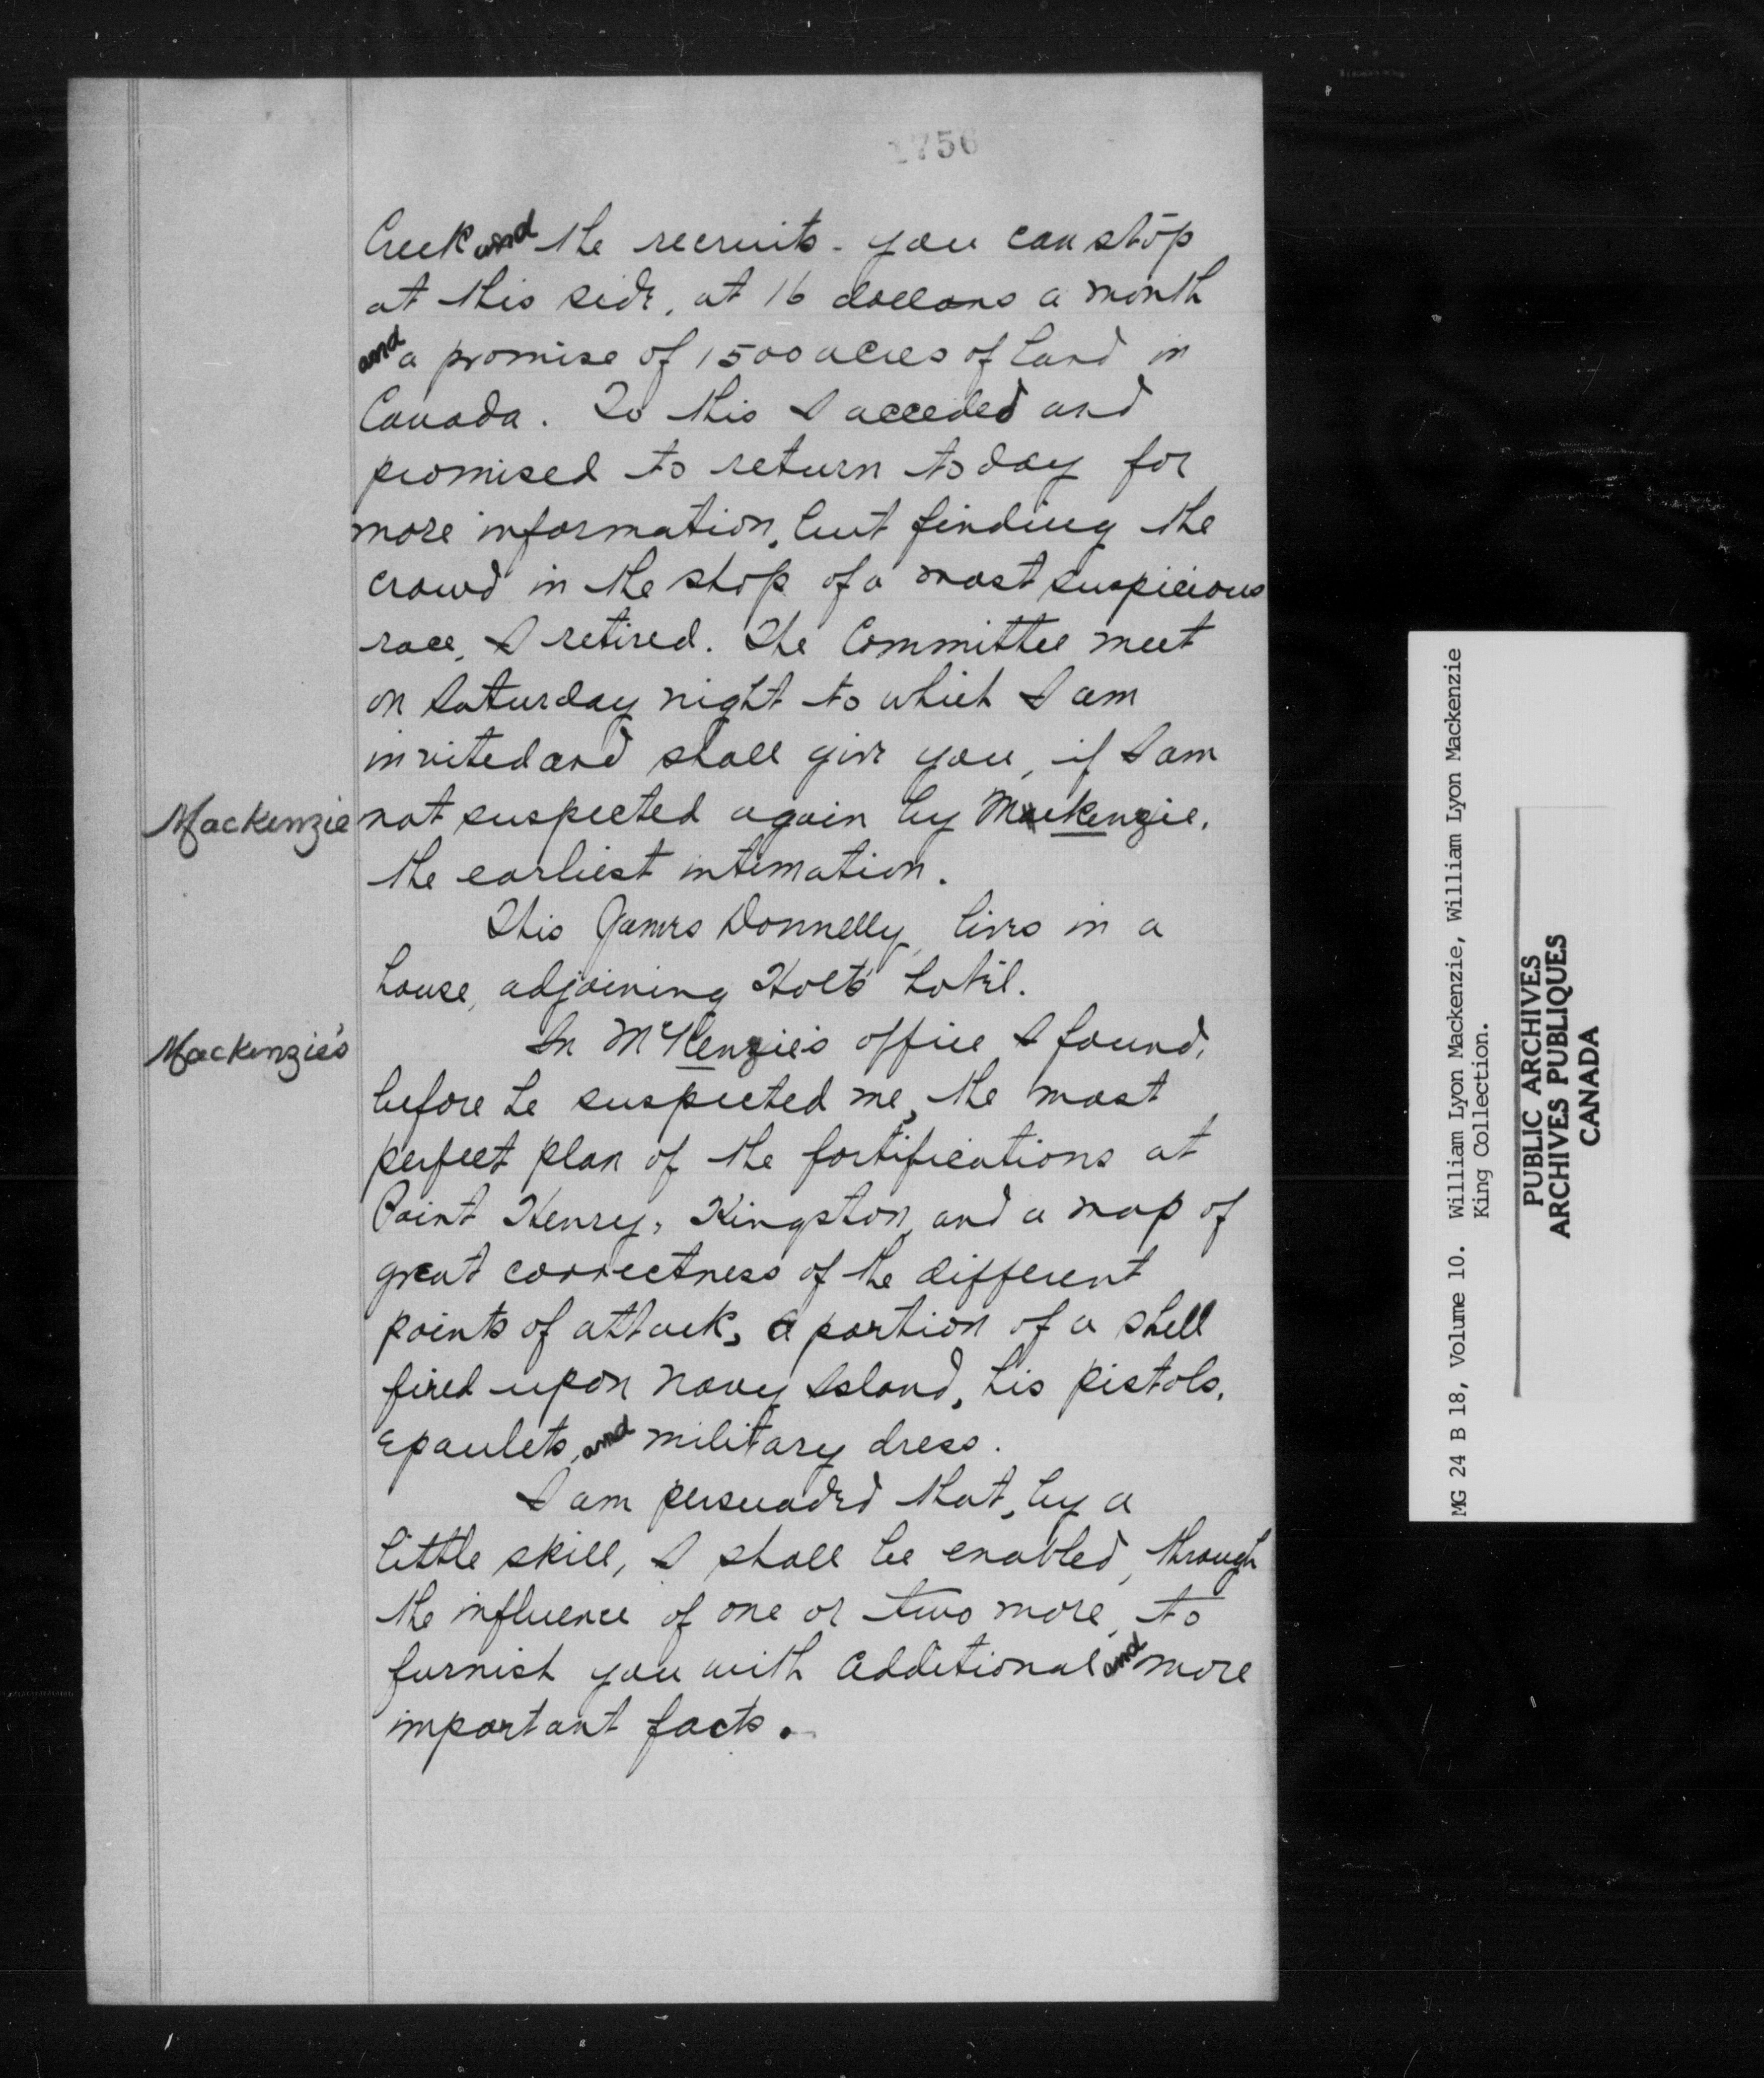 1756
Creek and the recruits - you can stop
at this side, at 16 dollars a month
and a promise of 1500 acres of land in
Canada. To this I acceded and
promised to return today for
more information, but finding the
crowd in the shop of a most suspicious
race, I retired. The Committee meet
on Saturday night to which I am
invited and shall give you, if I am
Mackenzie not suspected again by Mackenzie,
the earliest intimation.
This James Donnelly, lives in a
house, adjoining Holt's hotel.
Mackenzie's In McKenzie's office I found,
before he suspected me, the most
perfect plan of the fortifications at
Point Henry, Kingston, and a map of
great correctness of the different
points of attack, a portion of a shell
fired upon Navy Island, his pistols,
epaulets, and military dress.
I am persuaded that, by a
little skill, I shall be enabled, through
the influence of one or two more, to
furnish you with additional and more
important facts.
MG 24 B 18, Volume 10. William Lyon Mackenzie, William Lyon Mackenzie
King Collection.
PUBLIC ARCHIVES
ARCHIVES PUBLIQUES
CANADA